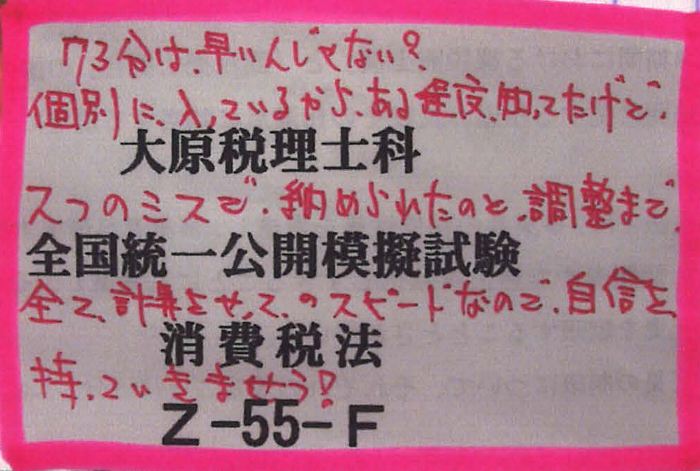 73分は、早いんじゃない?
個別に入っているから、ある程度、知ってたけど、
大原税理士科
2つのミスで、納められたのと、調整まで、
全国統一公開模擬試験
全て、計算をせって、のスピードなので、自信を
消費税法
持っていきませう!
Z-55-F